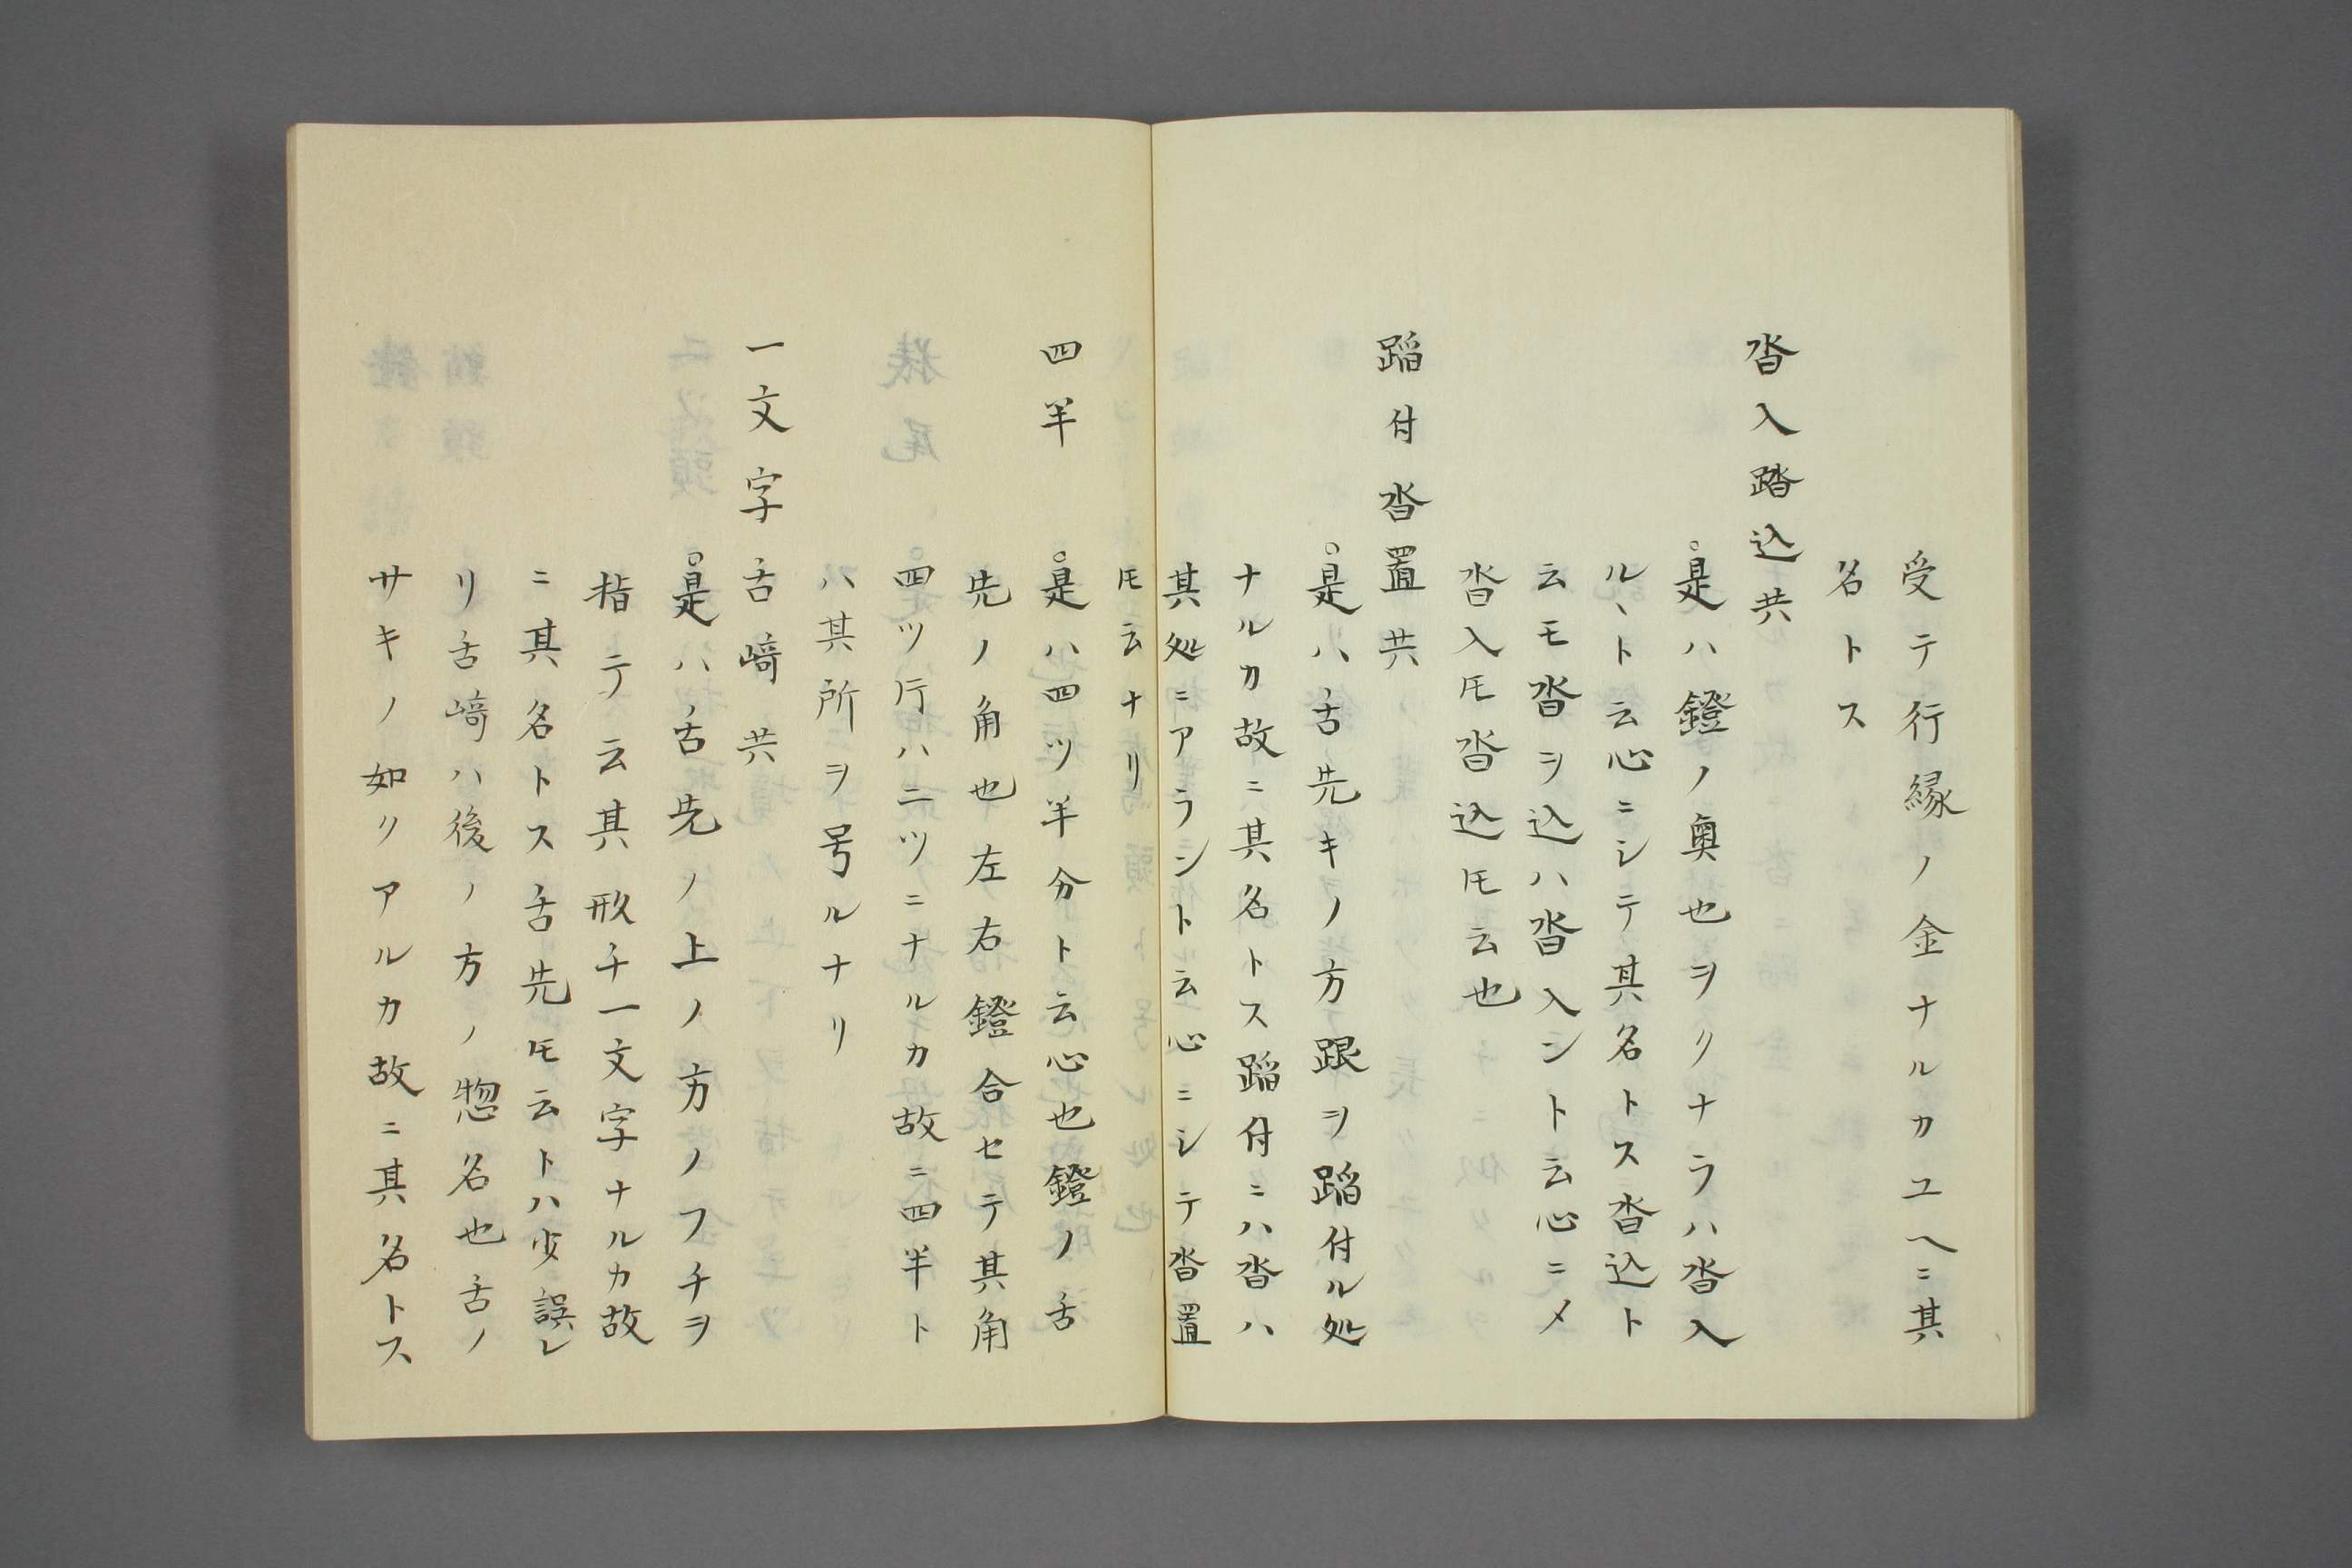 受テ行縁ノ金ナルカユヘニ其
名トス
沓入踏込共
○是ハ鐙ノ奥也ヲリナラハ沓入
ルヽト云心ニシテ其名トス沓込ト
云モ沓ヲ込ハ沓入ント云心ニメ
沓入𪜈沓込𪜈云也
蹈付沓置共
○是ハ舌先キノ方跟ヲ蹈付ル処
ナルカ故ニ其名トス蹈付ニハ沓ハ
其処ニアラント云心ニシテ沓置
𪜈云ナリ
四半
○是ハ四ツ半分ト云心也鐙ノ舌
先ノ角也左右鐙合セテ其角
四ツ斤ハ二ツニナルカ故ニ四半ト
ハ其所ヲ号ルナリ
一文字舌﨑共
○是ハ舌先ノ上ノ方ノフチヲ
指テ云其形チ一文字ナルカ故
ニ其名トス舌先𪜈云トハ少誤レ
リ舌﨑ハ後ノ方ノ惣名也舌ノ
サキノ如クアルカ故ニ其名トス